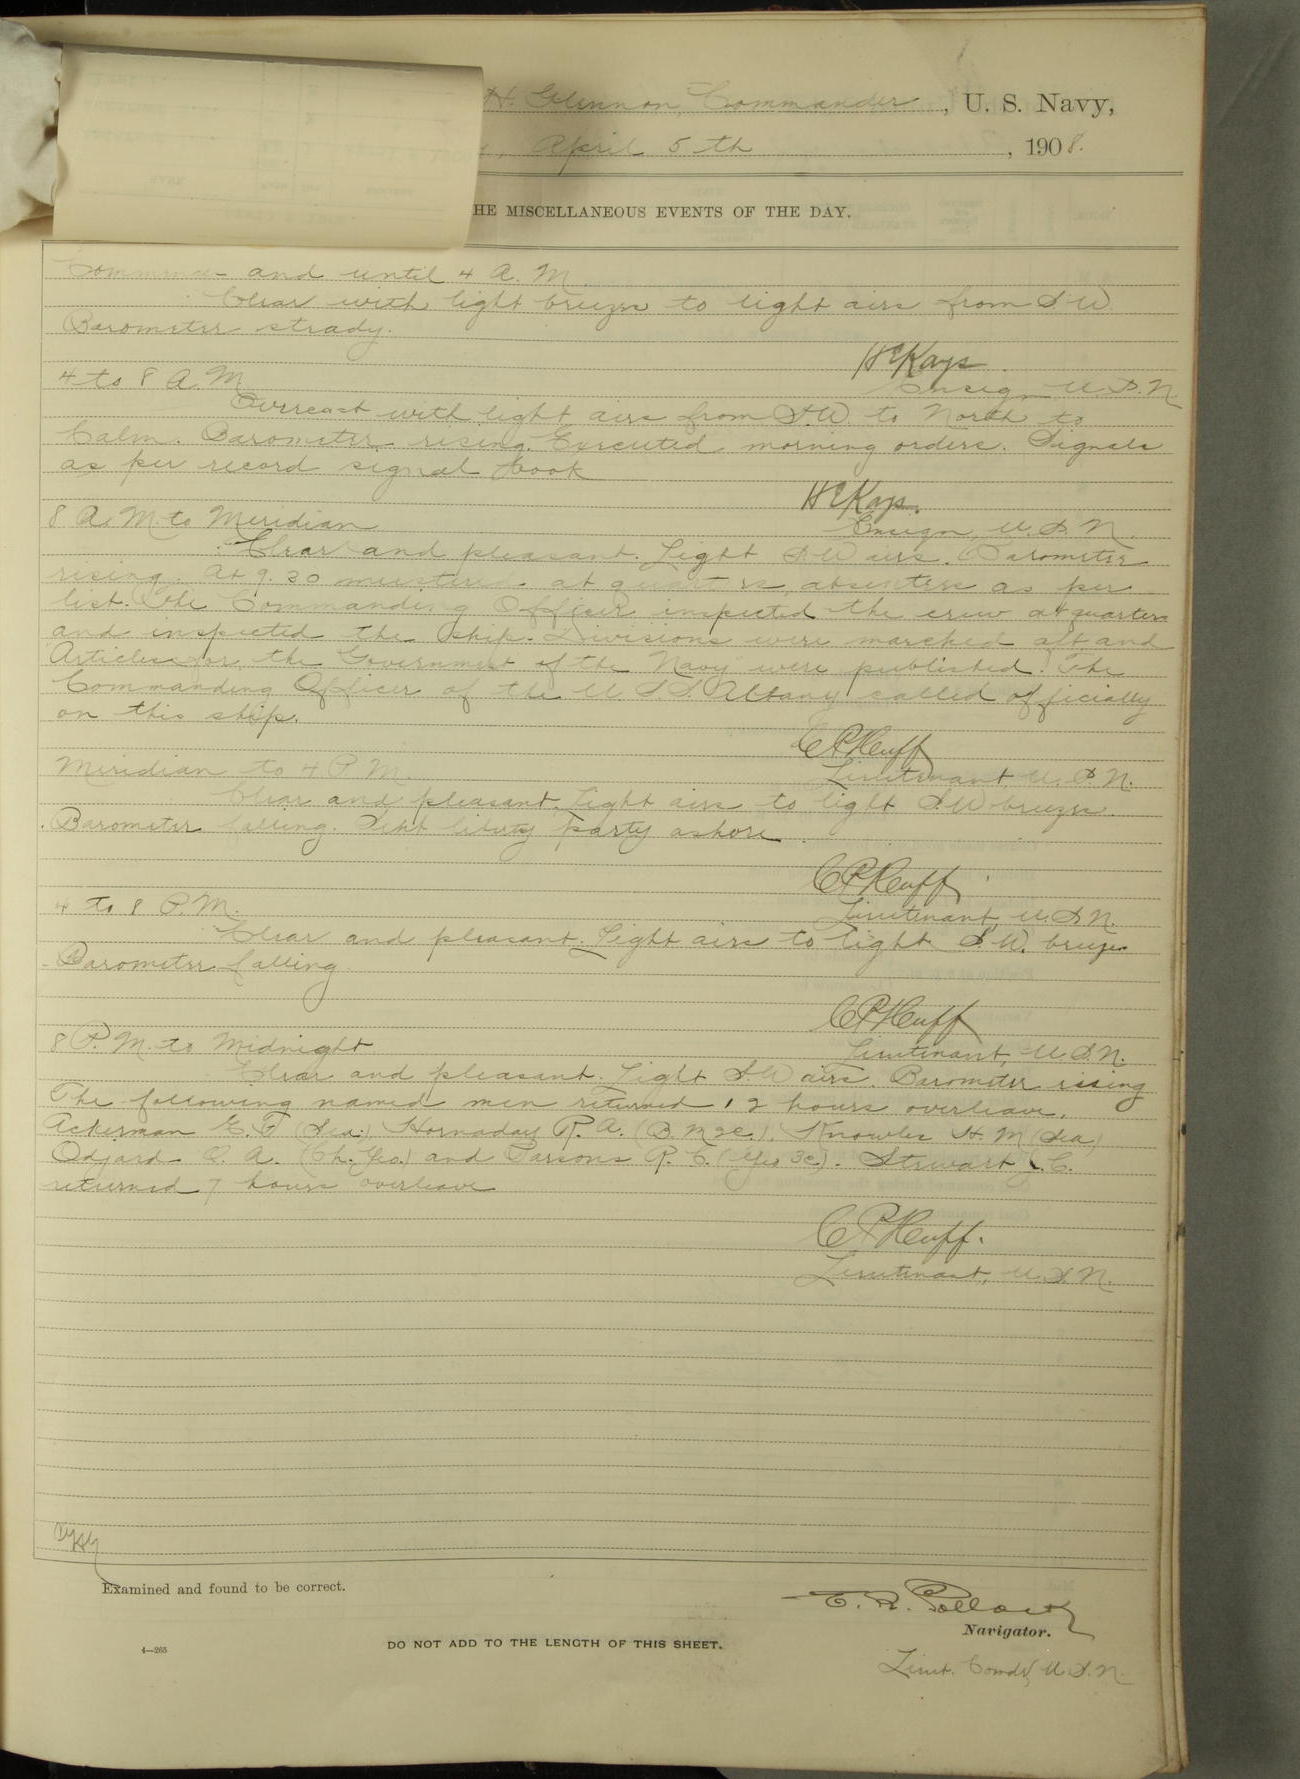 H. Glennon, Commander, U. S. Navy,
April 5th, 1908.
HE MISCELLANEOUS EVENTS OF THE DAY.
Commence and until 4 A. M.
Clear with light breezes to light airs from S.W.
Barometer steady.
H C Kays
4 to 8 A.M. Ensign U.S.N.
Overcast with light airs from S.W. to North to
Calm. Barometer rising. Executed morning orders. Signals
as per record signal book
H C Kays.
8 A.M. to Meridian Ensign, U.S.N.
Clear and pleasant. Light S.W. airs. Barometer
rising. At 9.30 mustered at quarters, absentees as per
list. The Commanding Officer inspected the crew at quarters
and inspected the ship. Divisions were marched aft and
Articles for the Government of the Navy were published. The
Commanding Officer of the U.S.S. Albany called officially
on this ship.
C P Huff
Meridian to 4 P.M. Lieutenant, U.S.N.
Clear and pleasant. Light airs to light S.W. breezes.
Barometer falling. Sent liberty party ashore
C P Huff
4 to 8 P.M. Lieutenant, U.S.N.
Clear and pleasant. Light airs to light S.W. breezes
Barometer falling
C P Huff
8 P.M. to Midnight Lieutenant, U.S.N.
Clear and pleasant. Light S.W. airs. Barometer rising
The following named men returned 12 hours overleave.
Ackerman E. F. (Sea.) Hornaday R. A. (B.M2c.), Knowles H. M (Sea)
Odjard O. A. (Ch. Yeo.) and Parsons R. C. (Yeo 3c). Stewart C.
returned 7 hours overleave
C P Huff.
Lieutenant, U.S.N.
Examined and found to be correct.
E. R. Pollock
Navigator.
4—265
DO NOT ADD TO THE LENGTH OF THIS SHEET.
Lieut. Comdr, U.S.N.